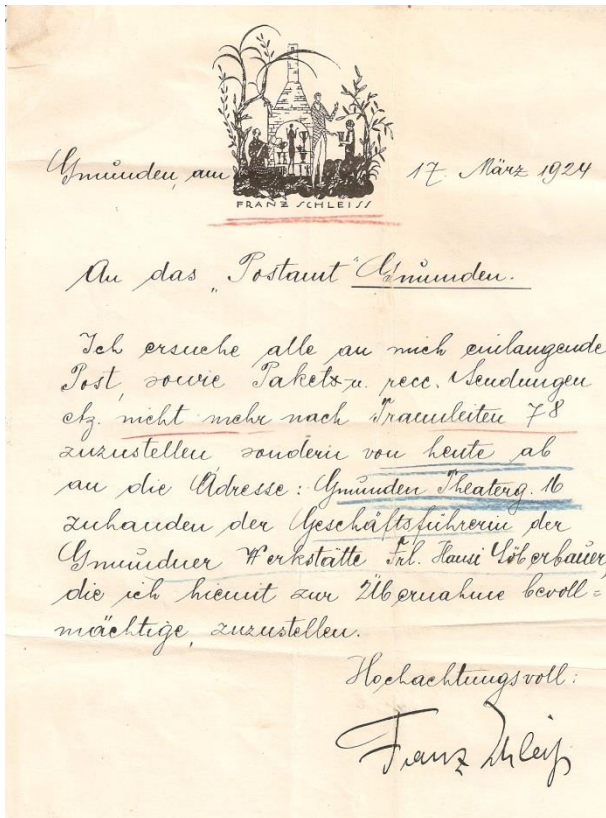 Gmunden, am 17. März 1924
FRANZ SCHLEISS
An das „Postamt“ Gmunden.
Ich ersuche alle an mich einlangende
Post, sowie Paket- u. recc. Sendungen
etz. nicht mehr nach Traunleiten 78
zuzustellen sondern von heute ab
an die Adresse: Gmunden Theaterg. 16
zuhanden der Geschäftsführerin der
Gmundner Werkstätte Frl. Hansi Löberbauer,
die ich hiemit zur Übernahme bevoll=
mächtige, zuzustellen.
Hochachtungsvoll:
Franz Schleiß